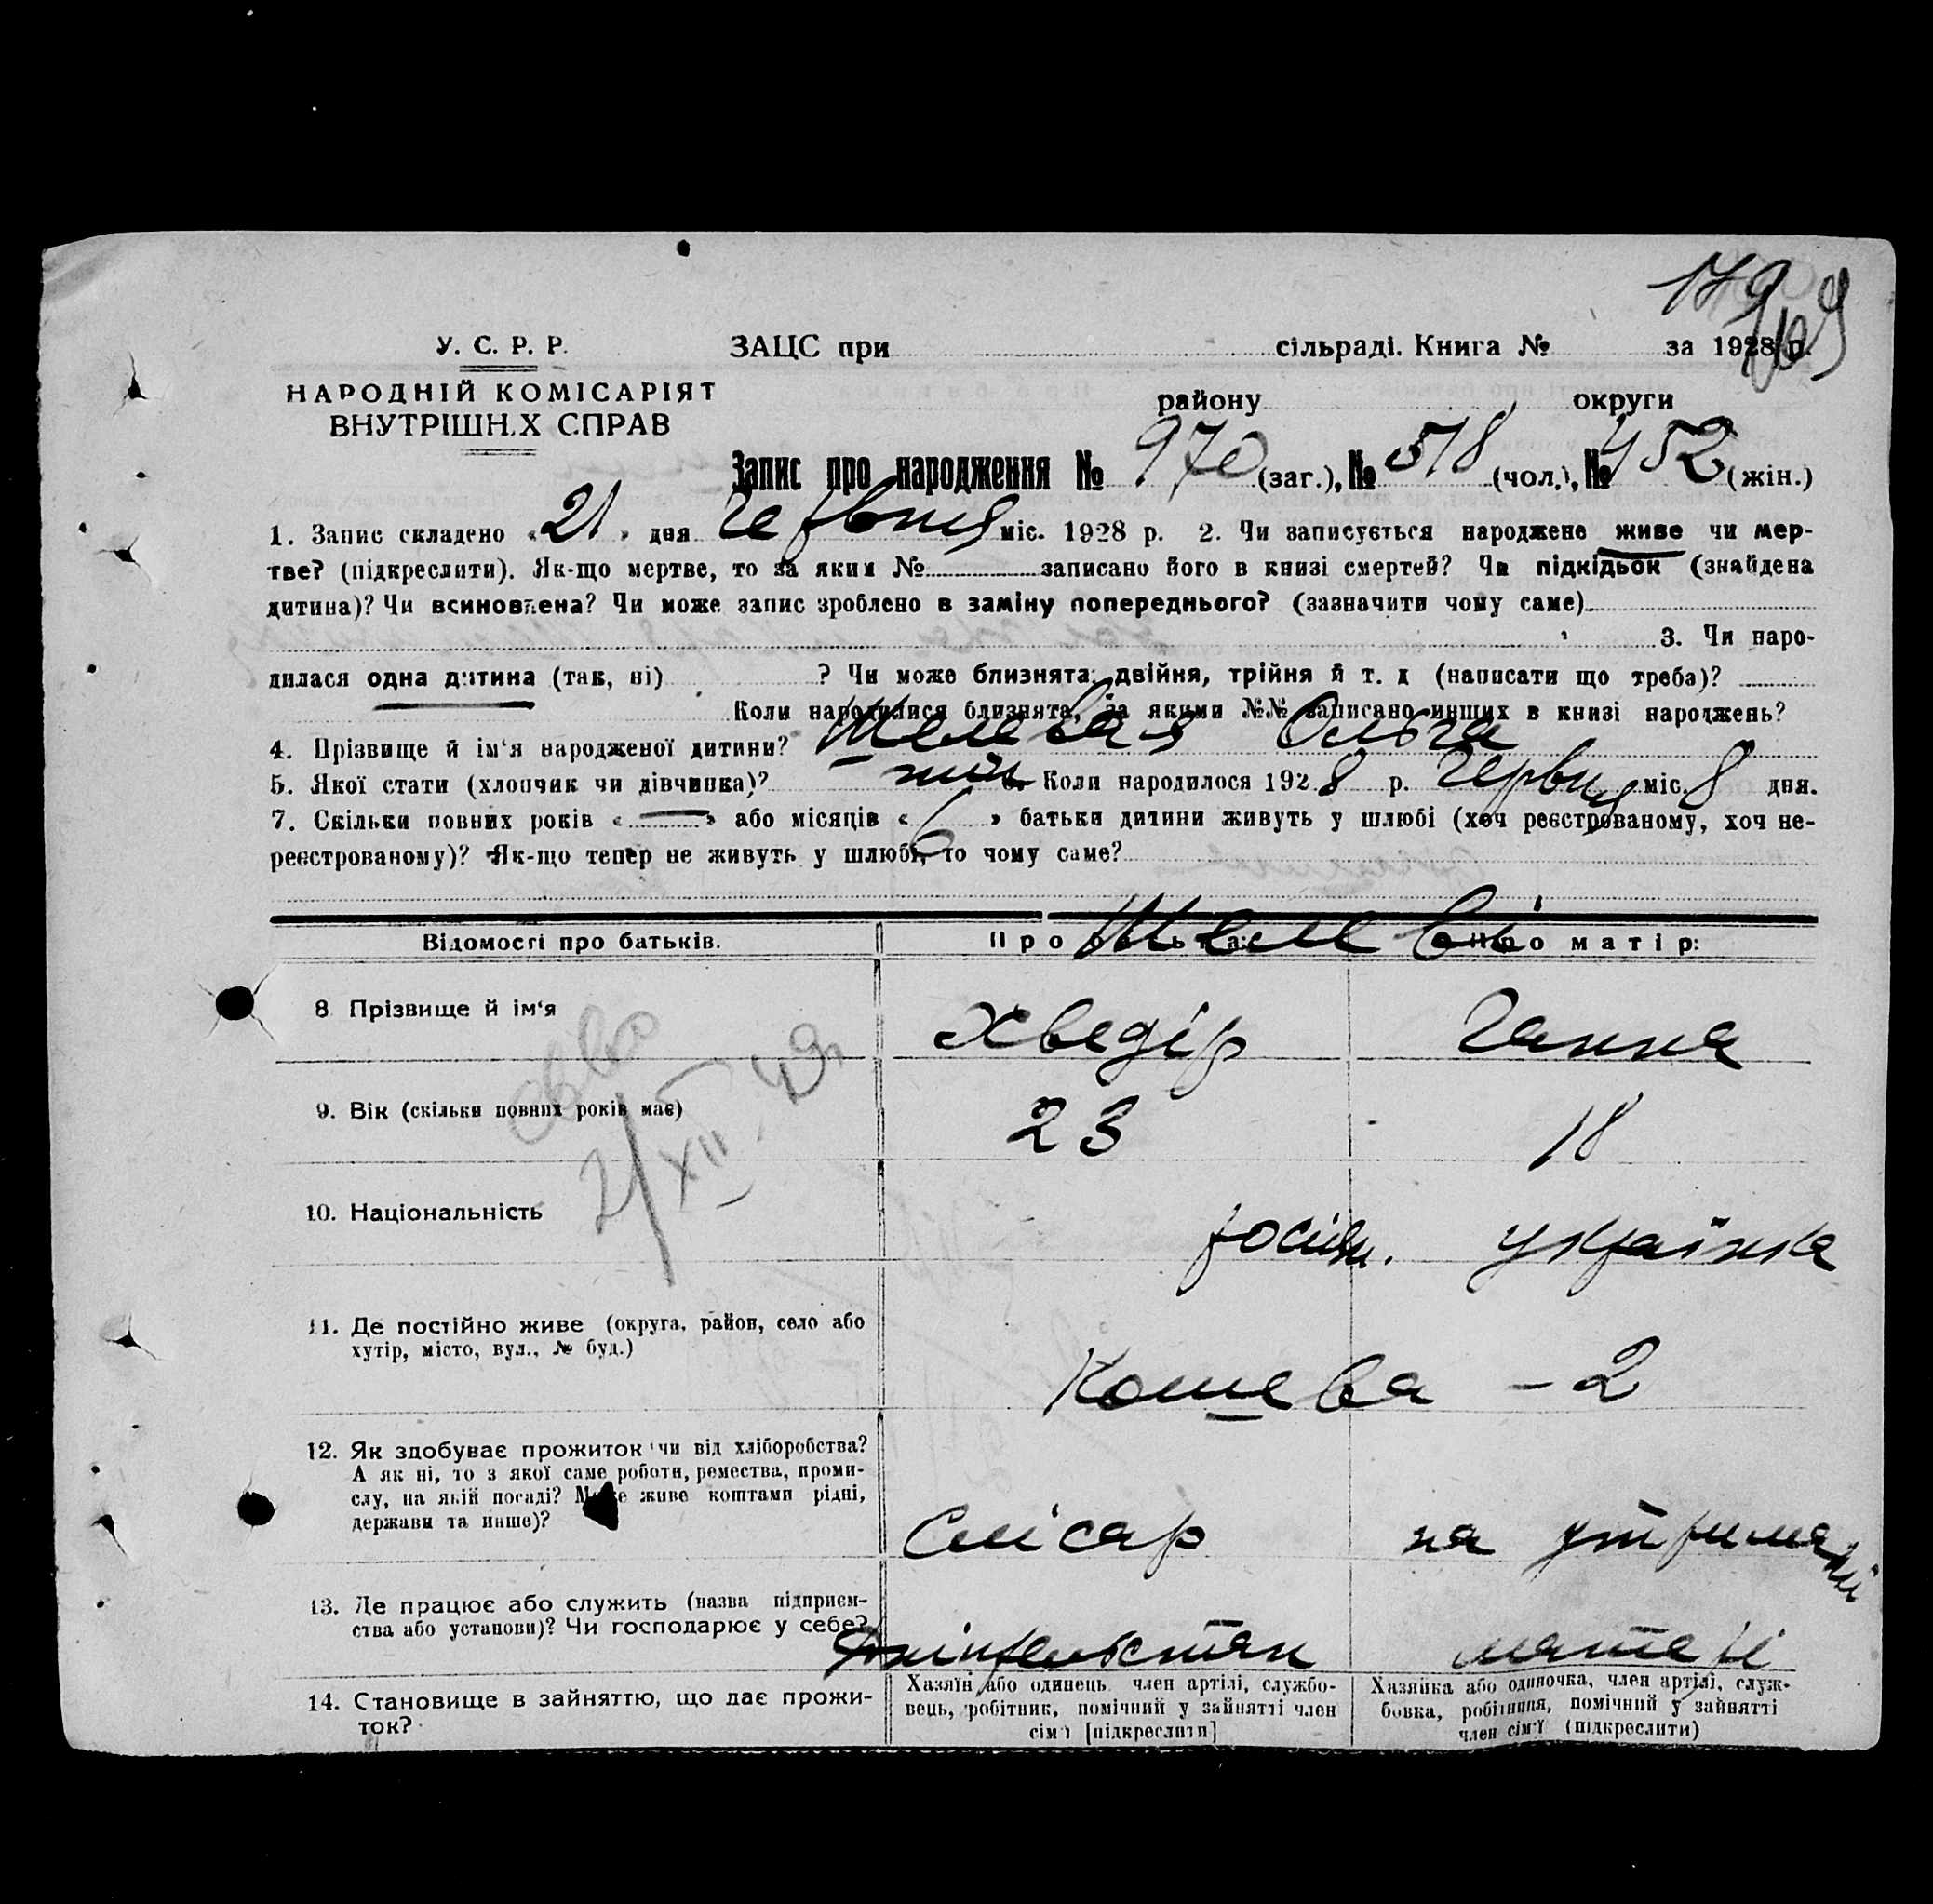 179
У. С. Р. Р.
НАРОДНІЙ КОМІСАРІЯТ
ВНУТРІШН.Х СПРАВ
ЗАЦС при сільраді. Книга № за 1928 р.
району округи
Запис про народження № 970 (заг.), № 518 (чол.), № 452 (жін.)
1. Запис складено «21» дня Червня міс. 1928 р. 2. Чи записується народжене живе чи мер-
тве? (підкреслити). Як-що мертве, то за яким № записано його в книзі смертей? Чи підкідьок (знайдена
дитина)? Чи всиновлена? Чи може запис зроблено в заміну попереднього? (зазначити чому саме)
3. Чи наро-
дилася одна дитина (так, ні) ? Чи може близнята: двійня, трійня й т. д (написати що треба)?
Коли народилися близнята, за якими №№ записано инших в книзі народжень?
4. Прізвище й ім‘я народженої дитини? Ольга
5. Якої стати (хлопчик чи дівчинка)? Коли народилося 1928 р. Червня міс. 8 дня.
7. Скільки повних років «—» або місяців «6» батьки дитини живуть у шлюбі (хоч реєстрованому, хоч не-
реєстрованому)? Як-що тепер не живуть у шлюбі, то чому саме?
Відомості про батьків. Про батька: Про матір:
8 Прізвище й ім‘я Хведір Ганна
9. Вік (скільки повних років має) 23 18
10. Національність росіян. українка
11. Де постійно живе (округа, район, село або
хутір, місто, вул., № буд.) Кошева – 2
12. Як здобуває прожиток чи від хліборобства?
А як ні, то з якої саме роботи, ремества, проми-
слу, на якій посаді? Може живе коштами рідні,
держави та инше)? Слісар на утриманні
13. Де працює або служить (назва підприєм-
ства або установи)? Чи господарює у себе? матері
14. Становище в зайняттю, що дає прожи-
ток?
Хазяїн або одинець член артілі, службо-
вець, робітник, помічний у зайнятті член
сім‘ї [підкреслити]
Хазяйка або одиночка, член артілі, служ-
бовка, робітниця, помічний у зайнятті
член сім‘ї (підкреслити)